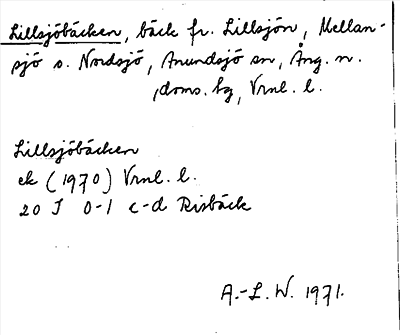 Lillsjöbäcken, bäck fr. Lillsjön, Mellan-
sjö s. Nordsjö, Anundsjö sn, Ång. n.
,doms. bg, Vrnl. l.
Lillsjöbäcken
ek (1970) Vrnl. l.
20 J 0-1 c-d Risbäck
A.-L. W. 1971.